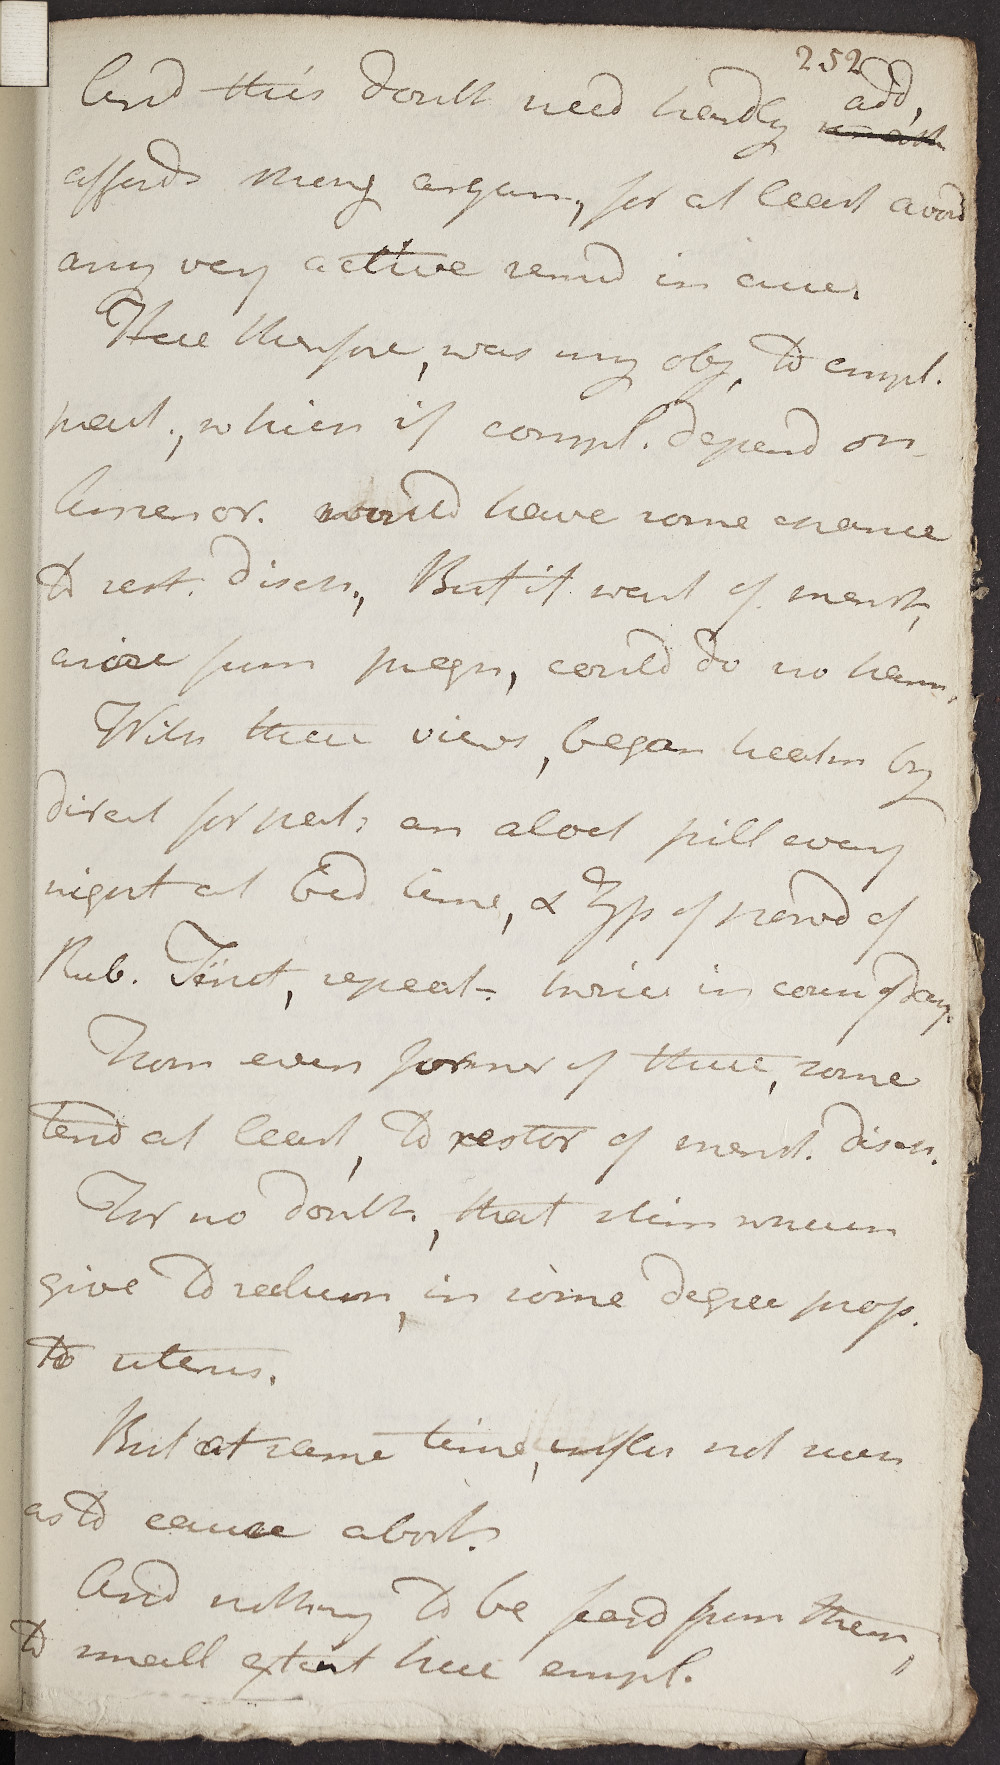 252
And this doubt need hardly add,
affords strong argum, for at least avoid
any very active remed in cure.
Here therefore, was my obj, to empl.
pract., which if compl. depend on
Amenor. would have some chance
to rest. disch., But if want of menst,
arise from pregn, could do no harm.
With these views, began health by
direct for pat: an aloet pill every
night at Bed time, & ʒss of powd of
Rub. Tinct, repeat twice in cour of day.
From even former of these, some
tend at least, to restor of menst. disch.
For no doubt, that stim which
give to rectum, in some degree prop.
to uterus.
But at same time, not such
as to cause abort.
And nothing to be feard from them,
to small extent here empl.